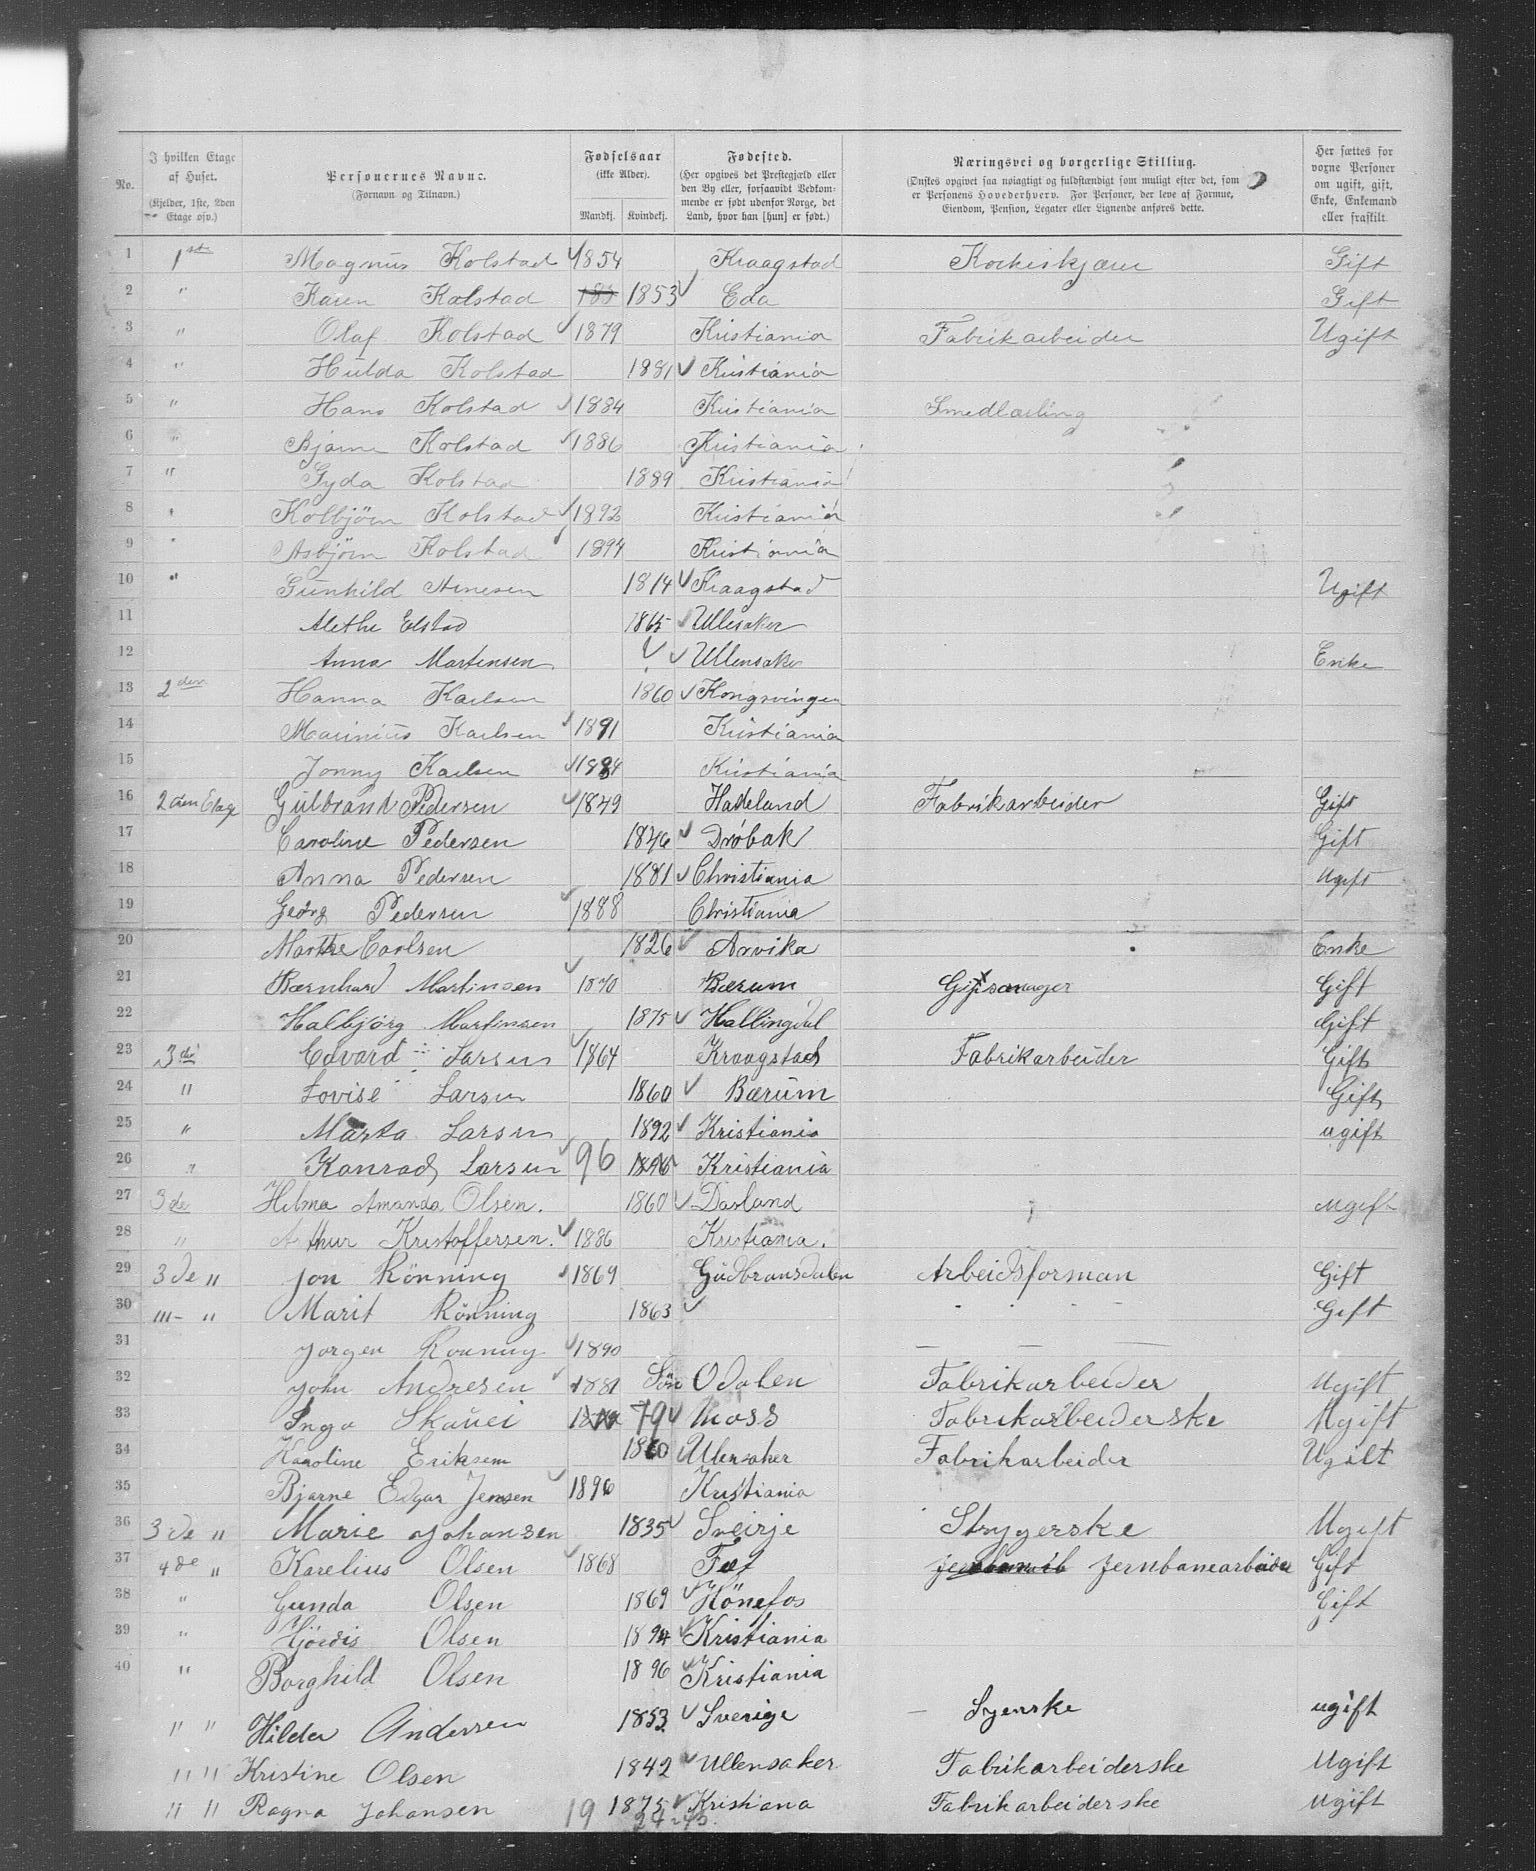 No. | I hvilken Etage af Huset. (Kjelder, 1ste, 2den Etage osv.) | Personernes Navne. (Fornavn og Tilnavn.) | Fødselsaar (ikke Alder). Mandkj. Kvindekj. | Fødested. (Her opgives det Prestegjæld eller den By eller, forsaavidt Vedkommende er født udenfor Norge, det Land, hvor han [hun] er født.) | Næringsvei og borgerlige Stilling. (Ønskes opgivet saa nøiagtigt og fuldstændigt som muligt efter det, som er Personens Hovederhverv. For Personer, der leve af Formue, Eiendom, Pension, Legater eller Lignende anføres dette.) | Her sættes for voxne Personer om ugift, gift, Enke, Enkemand eller fraskilt.
1 1ste Magnus Kolstad 1854 Kraagstad Gift
2 " Karen Kolstad 185 1853 Eda Gift
3 " Olaf Kolstad 1879 Kristiania Fabrikarbeider Ugift
4 " Hulda Kolstad 1881 Kristiania
5 " Hans Kolstad 1884 Kristiania Smedlærling
6 " Bjarne Kolstad 1886 Kristiania
7 " Gyda Kolstad 1889 Kristiania
8 " Kolbjörn Kolstad 1892 Kristiania
9 " Asbjörn Kolstad 1894 Kristiania
10 " Gunhild Arnesen 1814 Kraagstad Ugift
11 Alethe Elstad 1865 Ullesaker
12 Anna Martensen Ullensaker Enke
13 2den Hanna Karlsen 1860 Kongsvingen
14 Marinius Karlsen 1891 Kristiania
15 Jonny Karlsen 1894 Kristiania
16 2den Etage Gulbrand Pedersen 1849 Hadeland Fabrikarbeider Gift
17 Caroline Pedersen 1846 Dröbak Gift
18 Anna Pedersen 1881 Christiania Ugift
19 Georg Pedersen 1888 Christiania
20 Marthe Carlsen 1826 Arvika Enke
21 Bernhard Martinsen 1870 Bærum Gipsmager Gift
22 Halbjörg Martinsen 1875 Hallingdal Gift
23 3die Edvard Larsen 1864 Kraagstad Fabrikarbeider Gift
24 " Lovise Larsen 1860 Bærum Gift
25 " Marta Larsen 1892 Kristiania ugift
26 " Konrad Larsen 96 1896 Kristiania
27 3de Hilma Amanda Olsen. 1860 Dasland ugift
28 " Arthur Kristoffersen. 1886 Kristiania.
29 3de " Jon Rönning 1869 Gudbransdalen Arbeidsforman Gift
30 " " Marit Rönning 1863 Gift
31 Jorgen Rönning 1890
32 John Andresen 1881 Sön Odalen Fabrikarbeider Ugift
33 Inga Skauei 79 Moss Fabrikarbeiderske Ugift
34 Karoline Eriksen 1860 Ulensaker Fabrikarbeider Ugift
35 Bjarne Edgar Jensen 1896 Kristiania
36 3de " Marie Johansen 1835 Sveirje Strygerske Ugift
37 4de " Karelius Olsen 1868 Fet Jernbanearbeider Gift
38 " Gunda Olsen 1869 Hönefos Gift
39 " Hjördis Olsen 1894 Kristiania
40 " Borghild Olsen 1896 Kristiania
" " Hilder Andersen 1853 Sverige Syerske ugift
" " Kristine Olsen 1842 Ullensaker Fabrikarbeiderske Ugift
" " Ragna Johansen 1875 Kristiana Fabrikarbeiderske Ugift
19 24